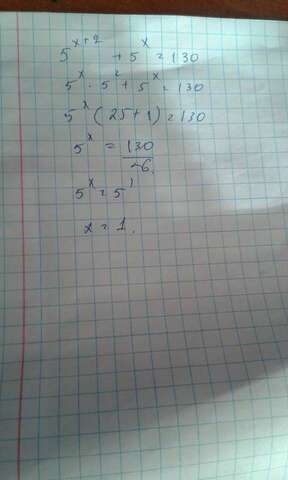 5^{x+2} + 5^x = 130
5^x · 5^2 + 5^x = 130
5^x (25+1) = 130
5^x = 130/26
5^x = 5^1
x = 1.